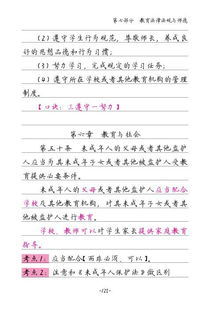 第七部分　教育法律法规与师德
(2)遵守学生行为规范，尊敬师长，养成良
好的思想品德和行为习惯；
(3)努力学习，完成规定的学习任务；
(4)遵守所在学校或者其他教育机构的管理
制度。
【口诀：三遵守一努力】
第六章　教育与社会
第五十条　未成年人的父母或者其他监护
人应当为其未成年子女或者其他被监护人受教
育提供必要条件。
未成年人的父母或者其他监护人应当配合
学校及其他教育机构，对其未成年子女或者其
他被监护人进行教育。
学校、教师可以对学生家长提供家庭教育
指导。
考点1：应当配合【而非必须、可以】。
考点2：注意和《未成年人保护法》做区别